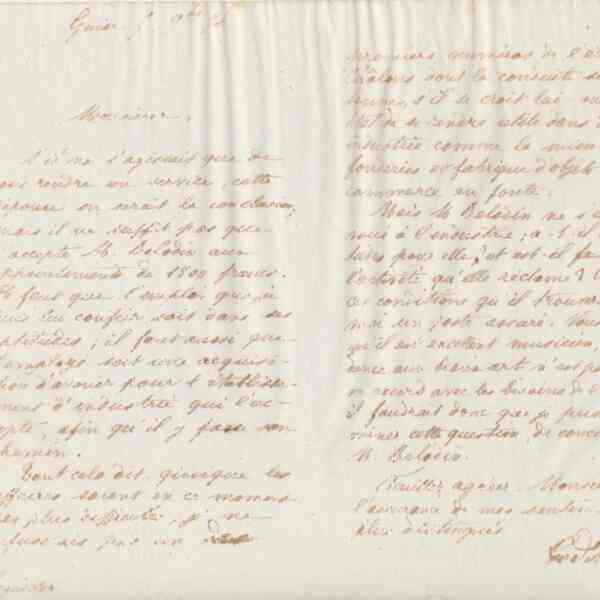 Guise
Monsieur,
S'il ne s'agissait que de
vous rendre un service, cette
réponse en serait la conclusion;
mais il ne suffit pas que
j'accepte M. Belodin aux
appointements de 1800 francs.
Il faut que l'emploi que je
puis lui confier soit dans ses
aptitudes; il faut aussi que
l'employé soit une acquisi-
tion d'avenir pour l'établisse-
ment d'industrie qui l'ac-
cepte, afin qu'il y fasse son
chemin.
Tout cela dit, quoique les
affaires soient en ce moment
des plus difficiles, je ne
refuserais pas un
premiers numéros de l'
Châlons dont la conduite
s'il se croit lui
état de se rendre utile dans
industrie comme la mien
fonderies et fabrique d'objets
commerce en fonte.
Mais M. Belodin ne s'
mis à l'industrie; a-t-il
pour elle, et est-il
l'activité qu'elle réclame?
ces conditions qu'il trouver
un poste assuré. Vous
qu'il est excellent musicien,
dance aux beaux arts n'est pas
en accord avec les besoins de l'
il faudrait donc que je puis
miner cette question de conce
M. Belodin.
Veuillez agréer Monsieur
l'assurance de mes sentim
plus distingués